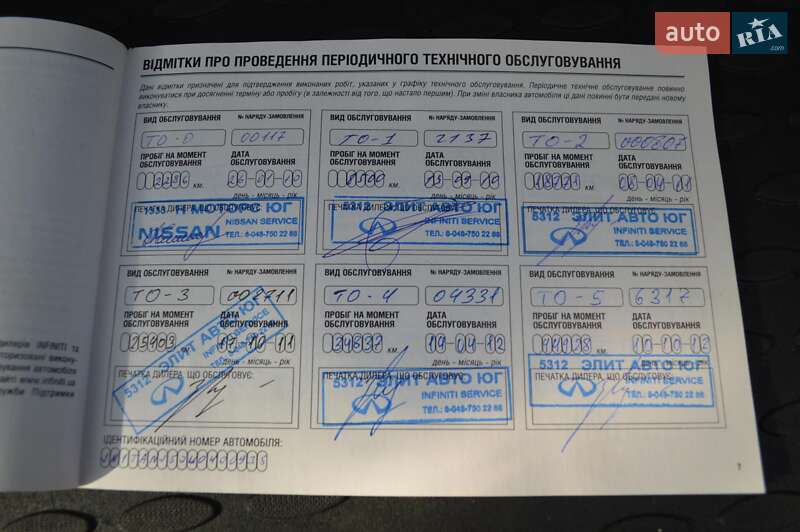 auto RIA.com
ВІДМІТКИ ПРО ПРОВЕДЕННЯ ПЕРІОДИЧНОГО ТЕХНІЧНОГО ОБСЛУГОВУВАННЯ
Дані відмітки призначені для підтвердження виконаних робіт, указаних у графіку технічного обслуговування. Періодичне технічне обслуговування повинно
виконуватися при досягненні терміну або пробігу (в залежності від того, що настало першим). При зміні власника автомобіля ці дані повинні бути передані новому
власнику.
ВИД ОБСЛУГОВУВАННЯ № НАРЯДУ-ЗАМОВЛЕННЯ
ТО-0 00117
ПРОБІГ НА МОМЕНТ ОБСЛУГОВУВАННЯ ДАТА ОБСЛУГОВУВАННЯ
КМ.
день - місяць - рік
ПЕЧАТКА ДИЛЕРА, ЩО ОБСЛУГОВУЄ:
МОТОРС ЮГ
NISSAN NISSAN SERVICE
ТЕЛ.: 8-048-750 22 88
ВИД ОБСЛУГОВУВАННЯ № НАРЯДУ-ЗАМОВЛЕННЯ
ТО-1 2137
ПРОБІГ НА МОМЕНТ ОБСЛУГОВУВАННЯ ДАТА ОБСЛУГОВУВАННЯ
КМ.
день - місяць - рік
ПЕЧАТКА ДИЛЕРА, ЩО ОБСЛУГОВУЄ:
5312 ЭЛИТ АВТО ЮГ
INFINITI SERVICE
ТЕЛ.: 8-048-750 22 88
ВИД ОБСЛУГОВУВАННЯ № НАРЯДУ-ЗАМОВЛЕННЯ
ТО-2
ПРОБІГ НА МОМЕНТ ОБСЛУГОВУВАННЯ ДАТА ОБСЛУГОВУВАННЯ
КМ. 04 11
день - місяць - рік
5312 ЭЛИТ АВТО ЮГ
INFINITI SERVICE
ТЕЛ.: 8-048-750 22 88
ВИД ОБСЛУГОВУВАННЯ № НАРЯДУ-ЗАМОВЛЕННЯ
ТО-3 002711
ПРОБІГ НА МОМЕНТ ОБСЛУГОВУВАННЯ ДАТА ОБСЛУГОВУВАННЯ
25903 17 10 11
день - місяць - рік
ПЕЧАТКА ДИЛЕРА, ЩО ОБСЛУГОВУЄ:
5312 ЭЛИТ АВТО ЮГ
INFINITI SERVICE
ТЕЛ.: 8-048-750 22 88
ВИД ОБСЛУГОВУВАННЯ № НАРЯДУ-ЗАМОВЛЕННЯ
ТО-4 04331
ПРОБІГ НА МОМЕНТ ОБСЛУГОВУВАННЯ ДАТА ОБСЛУГОВУВАННЯ
КМ. 19 04 12
день - місяць - рік
ПЕЧАТКА ДИЛЕРА, ЩО ОБСЛУГОВУЄ:
5312 ЭЛИТ АВТО ЮГ
INFINITI SERVICE
ТЕЛ.: 8-048-750 22 88
ВИД ОБСЛУГОВУВАННЯ № НАРЯДУ-ЗАМОВЛЕННЯ
ТО-5 6317
ПРОБІГ НА МОМЕНТ ОБСЛУГОВУВАННЯ ДАТА ОБСЛУГОВУВАННЯ
КМ.
день - місяць - рік
ПЕЧАТКА ДИЛЕРА, ЩО ОБСЛУГОВУЄ:
5312 ЭЛИТ АВТО ЮГ
INFINITI SERVICE
ТЕЛ.: 8-048-750 22 88
ІДЕНТИФІКАЦІЙНИЙ НОМЕР АВТОМОБІЛЯ:
дилерів INFINITI та
служби Підтримки
7